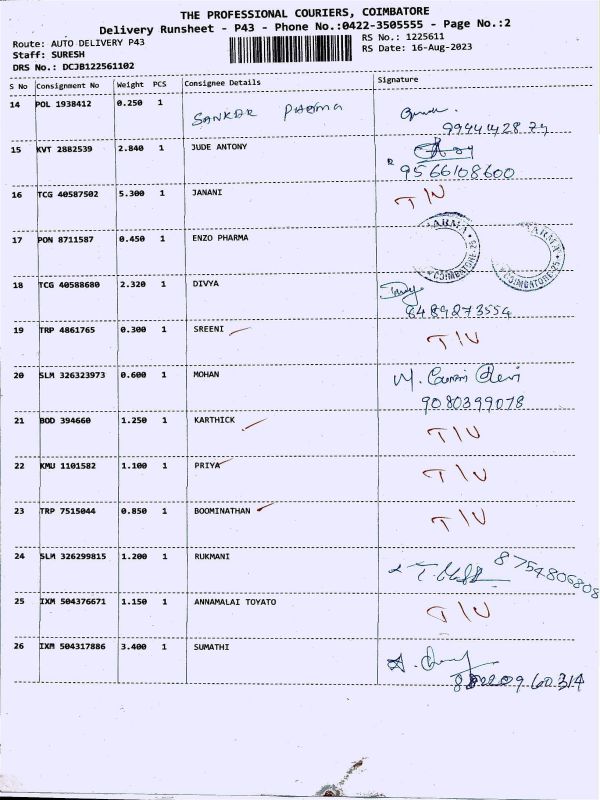 THE PROFESSIONAL COURIERS, COIMBATORE
Delivery Runsheet - P43 - Phone No.:0422-3505555 - Page No.:2
Route: AUTO DELIVERY P43 RS No.: 1225611
Staff: SURESH RS Date: 16-Aug-2023
DRS No.: DCJB122561102
S No Consignment No Weight PCS Consignee Details Signature
14 POL 1938412 0.250 1 SANKAR PHARMA
15 KVT 2882539 2.840 1 JUDE ANTONY
9566108600
16 TCG 40587502 5.300 1 JANANI T/N
17 PON 8711587 0.450 1 ENZO PHARMA
COIMBATORE-25 COIMBATORE-25
18 TCG 40588680 2.320 1 DIVYA
8489273554
19 TRP 4861765 0.300 1 SREENI T/N
20 SLM 326323973 0.600 1 MOHAN
9080399078
21 BOD 394660 1.250 1 KARTHICK T/N
22 KMU 1101582 1.100 1 PRIYA T/N
23 TRP 7515044 0.850 1 BOOMINATHAN T/N
24 SLM 326299815 1.200 1 RUKMANI 8754806808
25 IXM 504376671 1.150 1 ANNAMALAI TOYATO T/N
26 IXM 504317886 3.400 1 SUMATHI